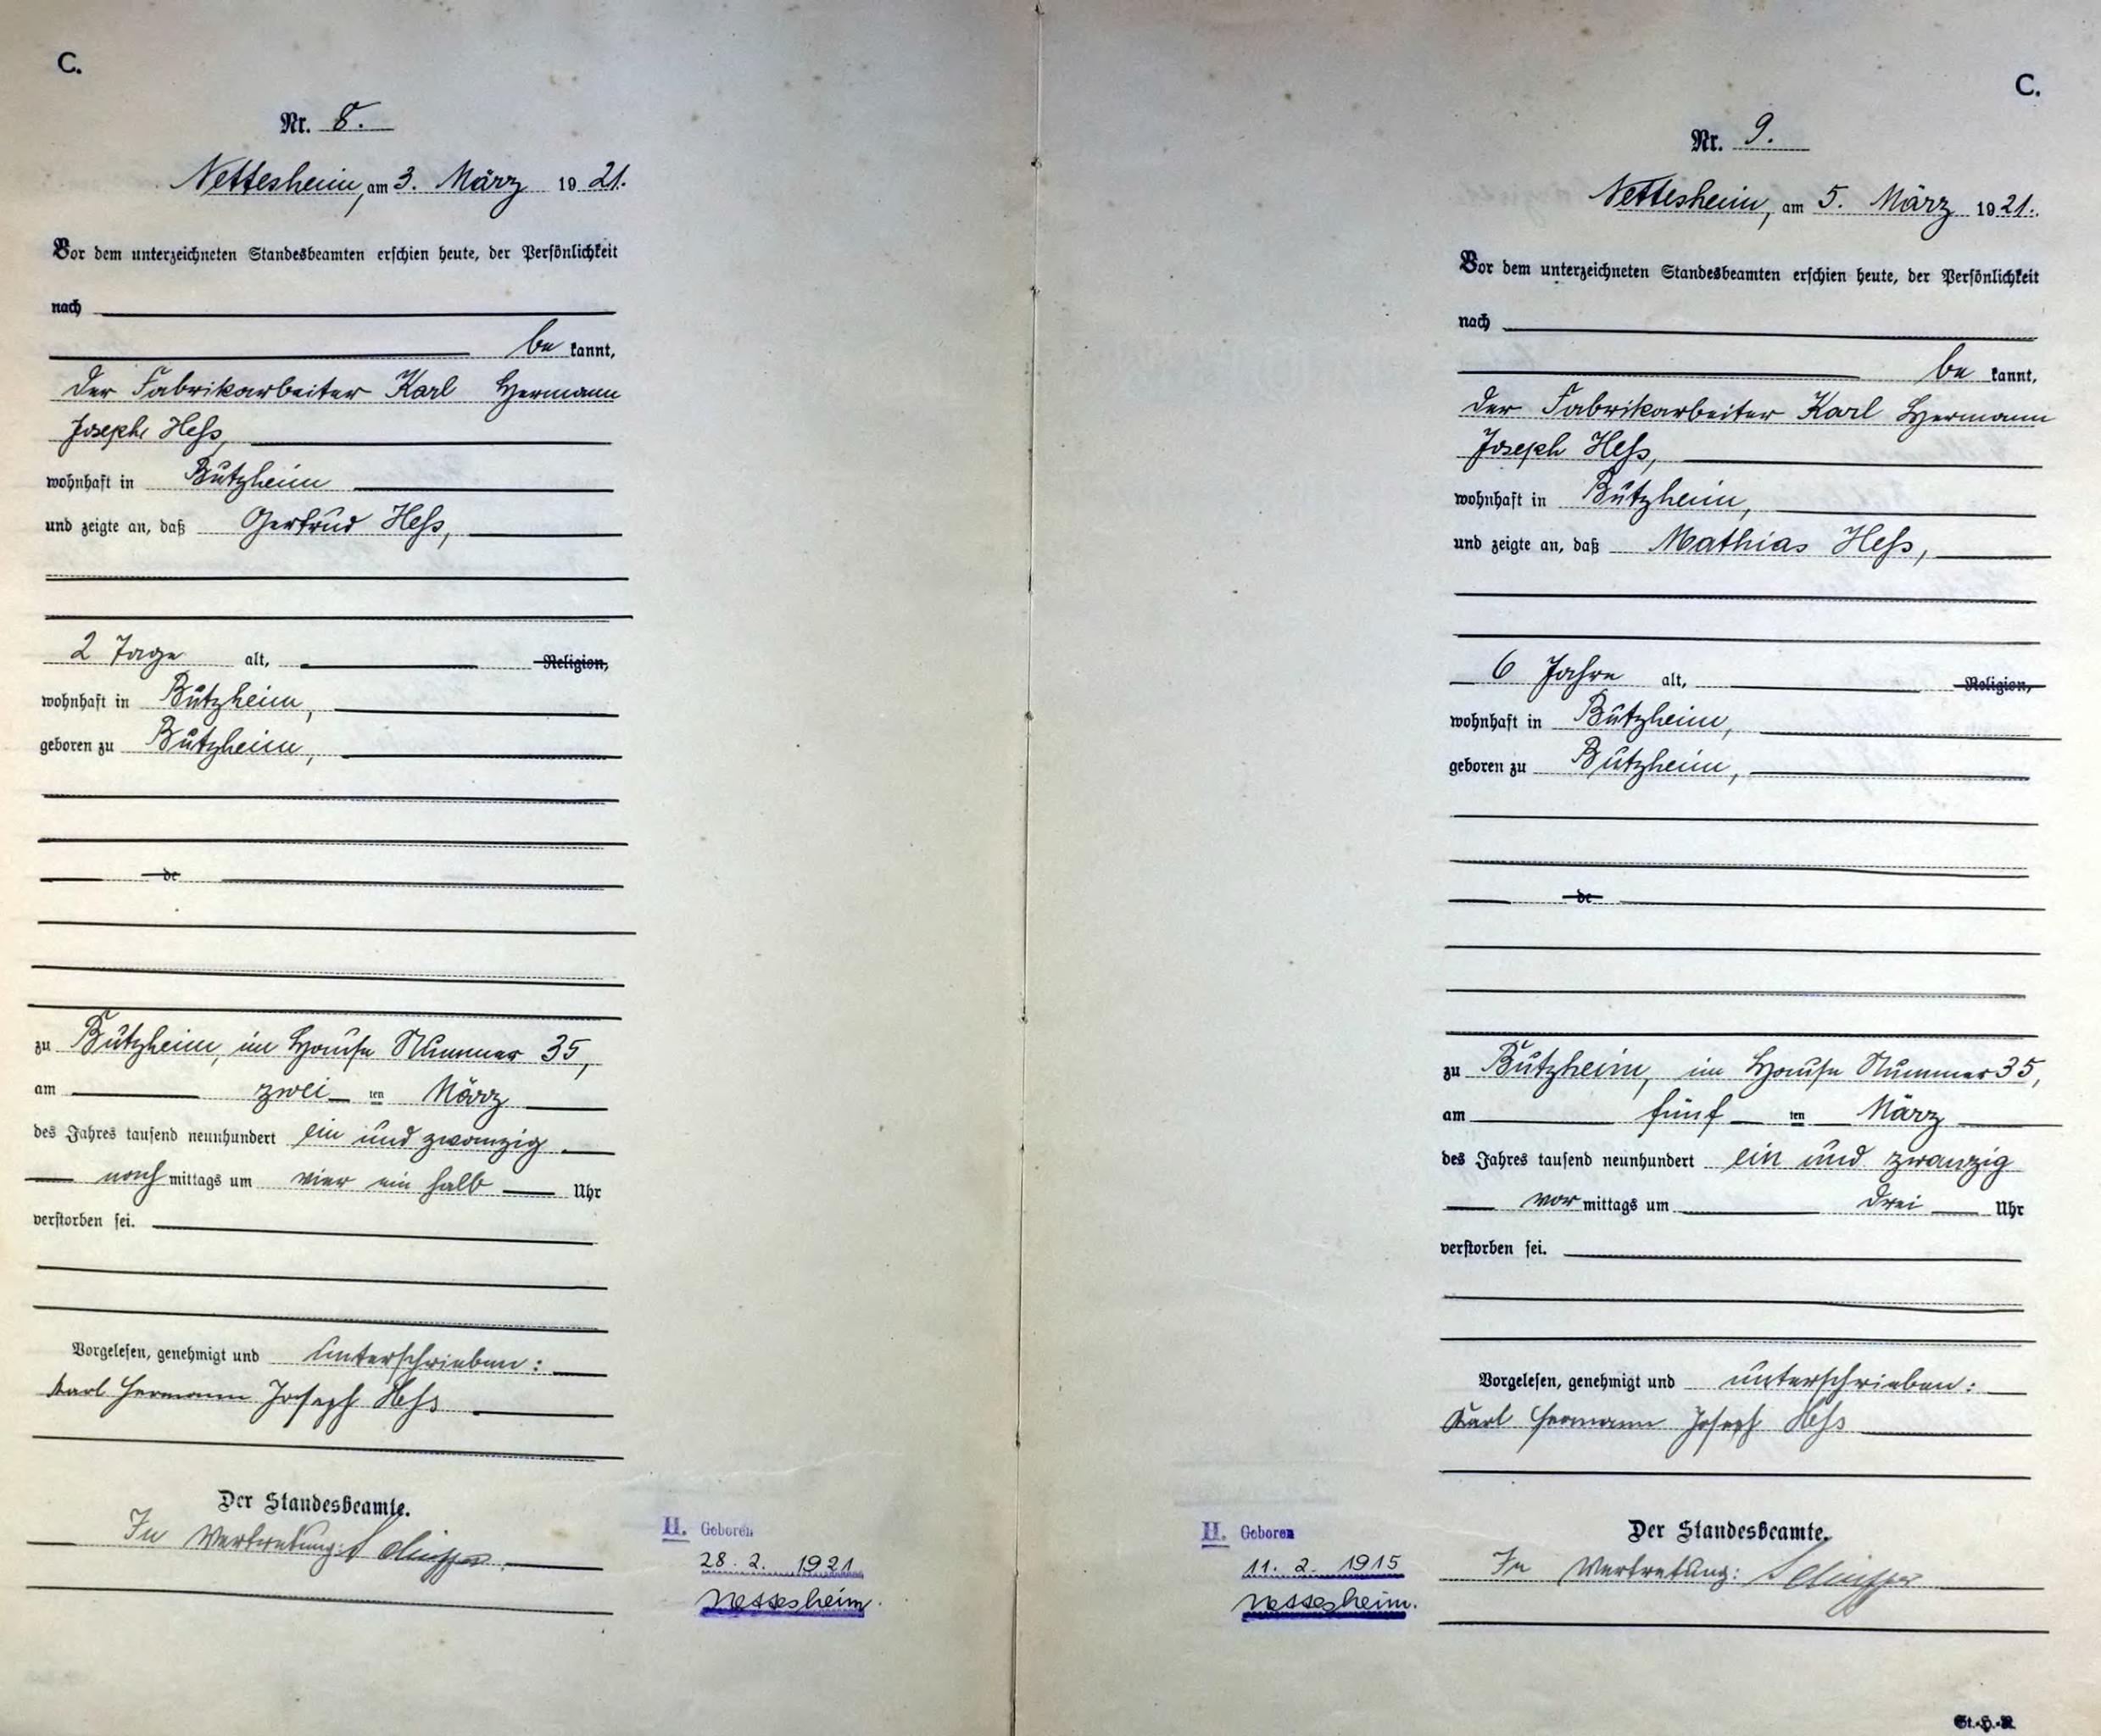 C.
Nr. 8.
Nettesheim, am 3. März 1921.
Vor dem unterzeichneten Standesbeamten erschien heute, der Persönlichkeit
nach
be kannt,
der Fabrikarbeiter Karl Hermann
Joseph Heß,
wohnhaft in Bützheim
und zeigte an, daß Gertrud Heß,
2 Tage alt, Religion,
wohnhaft in Bützheim,
geboren zu Bützheim,
de
zu Bützheim, im Hause Nummer 35,
am zwei ten März
des Jahres tausend neunhundert ein und zwanzig
nach mittags um vier ein halb Uhr
verstorben sei.
Vorgelesen, genehmigt und unterschrieben:
Karl Hermann Joseph Heß
Der Standesbeamte.
In Vertretung:
II. Geboren
28. 2. 1921
Nettesheim.
C.
Nr. 9.
Nettesheim, am 5. März 1921.
Vor dem unterzeichneten Standesbeamten erschien heute, der Persönlichkeit
nach
be kannt,
der Fabrikarbeiter Karl Hermann
Joseph Heß,
wohnhaft in Bützheim,
und zeigte an, daß Mathias Heß,
6 Jahre alt, Religion,
wohnhaft in Bützheim,
geboren zu Bützheim,
de
zu Bützheim, im Hause Nummer 35,
am fünf ten März
des Jahres tausend neunhundert ein und zwanzig
vor mittags um drei Uhr
verstorben sei.
Vorgelesen, genehmigt und unterschrieben:
Karl Hermann Joseph Heß
Der Standesbeamte.
In Vertretung:
II. Geboren
11. 2. 1915
Nettesheim.
St.-H.-R.